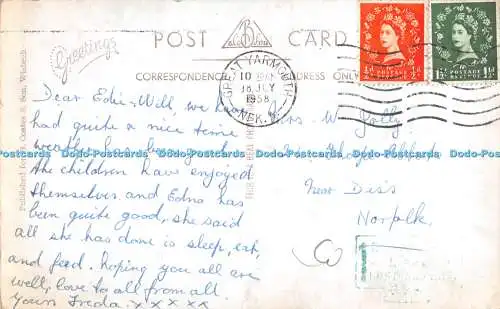 Greetings
POST CARD
CORRESPONDENCE ADDRESS ONLY
GREAT YARMOUTH
18 JLY
1958
NORFOLK
POSTAGE REVENUE
½D ½D
POSTAGE REVENUE
1½D 1½D
Dear Edie & Will, we have
had quite a nice time
weather has been
the children have enjoyed
themselves and Edna has
been quite good, she said
all she has done is sleep, eat,
and feed. hoping you all are
well, love to all from all.
Yours Freda x x x x x
Mrs W Jolly
Near Diss
Norfolk.
Published for Coates & Son, Wisbech
Dodo-Postcards Dodo-Postcards Dodo-Postcards Dodo-Postcards